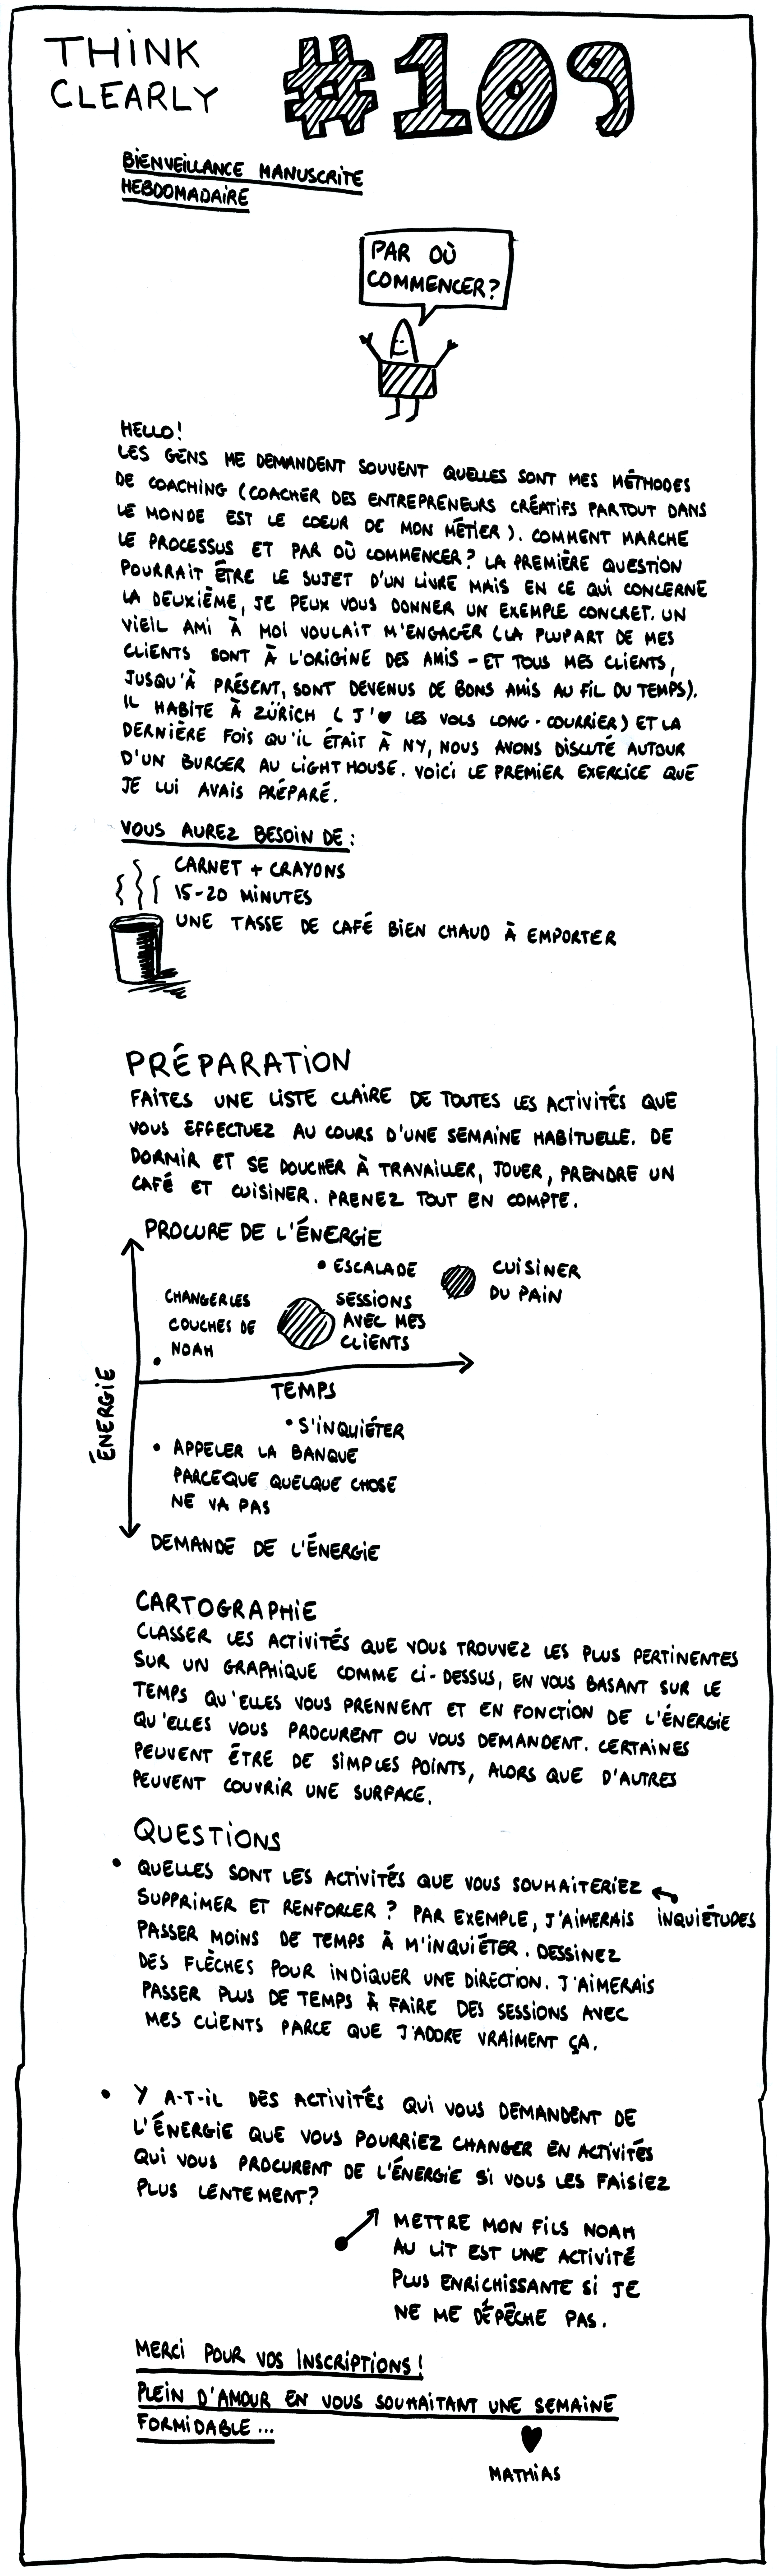 THINK
CLEARLY
#109
BIENVEILLANCE MANUSCRITE
HEBDOMADAIRE
PAR OÙ
COMMENCER?
HELLO!
LES GENS ME DEMANDENT SOUVENT QUELLES SONT MES MÉTHODES
DE COACHING (COACHER DES ENTREPRENEURS CRÉATIFS PARTOUT DANS
LE MONDE EST LE COEUR DE MON MÉTIER). COMMENT MARCHE
LE PROCESSUS ET PAR OÙ COMMENCER? LA PREMIÈRE QUESTION
POURRAIT ÊTRE LE SUJET D'UN LIVRE MAIS EN CE QUI CONCERNE
LA DEUXIÈME, JE PEUX VOUS DONNER UN EXEMPLE CONCRET. UN
VIEIL AMI À MOI VOULAIT M'ENGAGER (LA PLUPART DE MES
CLIENTS SONT À L'ORIGINE DES AMIS - ET TOUS MES CLIENTS,
JUSQU'À PRÉSENT, SONT DEVENUS DE BONS AMIS AU FIL DU TEMPS).
IL HABITE À ZÜRICH ( J'♥ LES VOLS LONG-COURRIER) ET LA
DERNIÈRE FOIS QU'IL ÉTAIT À NY, NOUS AVONS DISCUTÉ AUTOUR
D'UN BURGER AU LIGHTHOUSE. VOICI LE PREMIER EXERCICE QUE
JE LUI AVAIS PRÉPARÉ.
VOUS AUREZ BESOIN DE:
CARNET + CRAYONS
15-20 MINUTES
UNE TASSE DE CAFÉ BIEN CHAUD À EMPORTER
PRÉPARATION
FAITES UNE LISTE CLAIRE DE TOUTES LES ACTIVITÉS QUE
VOUS EFFECTUEZ AU COURS D'UNE SEMAINE HABITUELLE. DE
DORMIR ET SE DOUCHER À TRAVAILLER, JOUER, PRENDRE UN
CAFÉ ET CUISINER. PRENEZ TOUT EN COMPTE.
PROCURE DE L'ÉNERGIE
• ESCALADE
CUISINER
DU PAIN
CHANGER LES
COUCHES DE
NOAH
SESSIONS
AVEC MES
CLIENTS
TEMPS
ÉNERGIE
• S'INQUIÉTER
• APPELER LA BANQUE
PARCEQUE QUELQUE CHOSE
NE VA PAS
DEMANDE DE L'ÉNERGIE
CARTOGRAPHIE
CLASSER LES ACTIVITÉS QUE VOUS TROUVEZ LES PLUS PERTINENTES
SUR UN GRAPHIQUE COMME CI-DESSUS, EN VOUS BASANT SUR LE
TEMPS QU'ELLES VOUS PRENNENT ET EN FONCTION DE L'ÉNERGIE
QU'ELLES VOUS PROCURENT OU VOUS DEMANDENT. CERTAINES
PEUVENT ÊTRE DE SIMPLES POINTS, ALORS QUE D'AUTRES
PEUVENT COUVRIR UNE SURFACE.
QUESTIONS
• QUELLES SONT LES ACTIVITÉS QUE VOUS SOUHAITERIEZ
SUPPRIMER ET RENFORCER? PAR EXEMPLE, J'AIMERAIS
INQUIÉTUDES
PASSER MOINS DE TEMPS À M'INQUIÉTER. DESSINEZ
DES FLÈCHES POUR INDIQUER UNE DIRECTION. J'AIMERAIS
PASSER PLUS DE TEMPS À FAIRE DES SESSIONS AVEC
MES CLIENTS PARCE QUE J'ADORE VRAIMENT ÇA.
• Y A-T-IL DES ACTIVITÉS QUI VOUS DEMANDENT DE
L'ÉNERGIE QUE VOUS POURRIEZ CHANGER EN ACTIVITÉS
QUI VOUS PROCURENT DE L'ÉNERGIE SI VOUS LES FAISIEZ
PLUS LENTEMENT?
METTRE MON FILS NOAH
AU LIT EST UNE ACTIVITÉ
PLUS ENRICHISSANTE SI JE
NE ME DÉPÊCHE PAS.
MERCI POUR VOS INSCRIPTIONS!
PLEIN D'AMOUR EN VOUS SOUHAITANT UNE SEMAINE
FORMIDABLE...
♥
MATHIAS